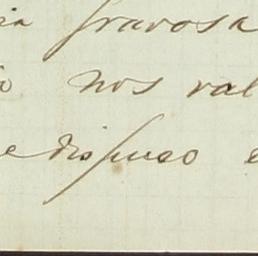 ia gravosa
o nos val
e dispuso e